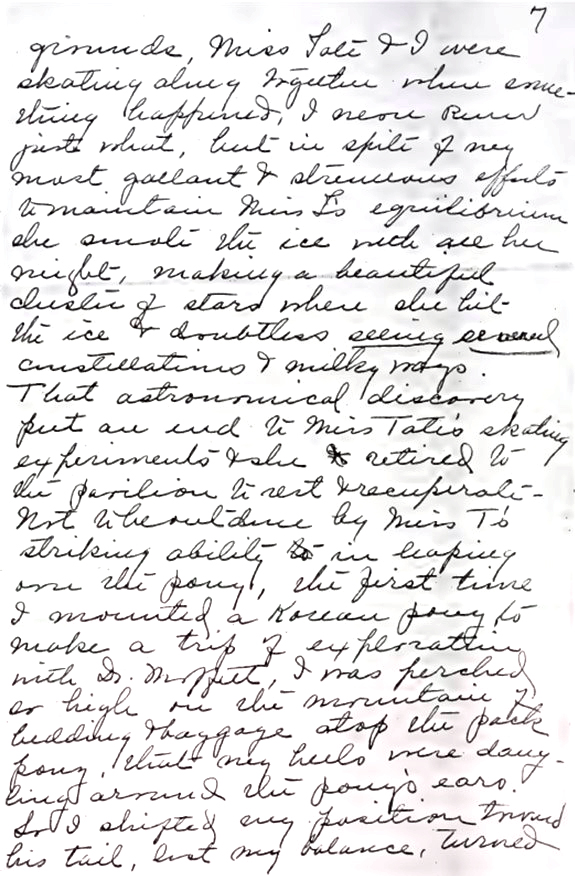 7
grounds, Miss Tate & I were
skating along together when some-
thing happened, I never knew
just what, but in spite of my
most gallant & strenuous efforts
to maintain Miss T's equilibrium
she smote the ice with all her
might, making a beautiful
cluster of stars where she hit
the ice & doubtless seeing several
constellations & milky ways.
That astronomical discovery
put an end to Miss Tate's skating
experiments & she retired to
the pavilion to rest & recuperate-
Not to be outdone by Miss T's
striking ability to in leaping
over the pony, the first time
I mounted a Korean pony to
make a trip of exploration
with Dr. Moffett, I was perched
so high on the mountain of
bedding & baggage atop the pack
pony, that my heels were dang-
ling around the pony's ears.
So I shifted my position toward
his tail, lost my balance, turned